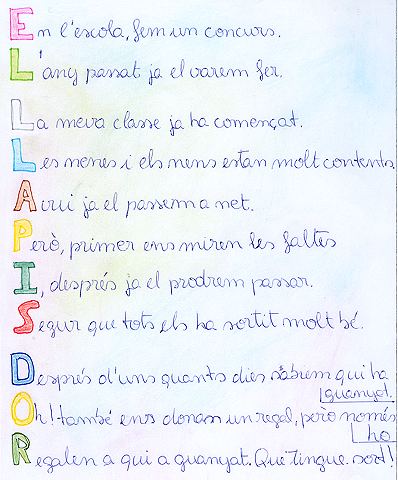 En l'escola, fem un concurs.
L'any passat ja el varem fer.
La meva classe ja ha començat.
Les nenes i els nens estan molt contents.
Avui ja el passem a net.
Però, primer ens miren les faltes
I, després ja el prodrem passar.
Segur que tots els ha sortit molt bé.
Després d'uns quants dies sabrem qui ha
guanyat.
Oh! també ens donan un regal, però només
ho
Regalen a qui a guanyat. Que tingue sort!